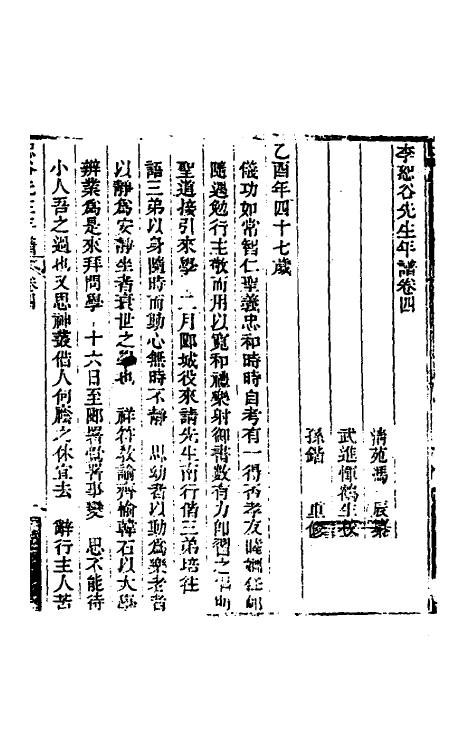 李恕谷先生年譜卷四
清苑馮辰纂
武進惲鶴生校
孫鍇重修
乙酉年四十七歲
儀功如常智仁聖義忠和時時自考有一得否孝友睦婣任卹
隨遇勉行主敬而用以寬和禮樂射御書數有力即習之
聖道接引來學 二月郾城役來請先生南行偕三弟培往
語三弟以身隨時而動心無時不靜 思幼者以動為樂老者
以靜為安靜坐者衰世之學也 祥符教諭齊愉韓石以大學
辨業為是來拜問學 十六日至郾署當署事變 思不能待
小人吾之過也又思神叢借人何勝之休宜去 辭行主人苦